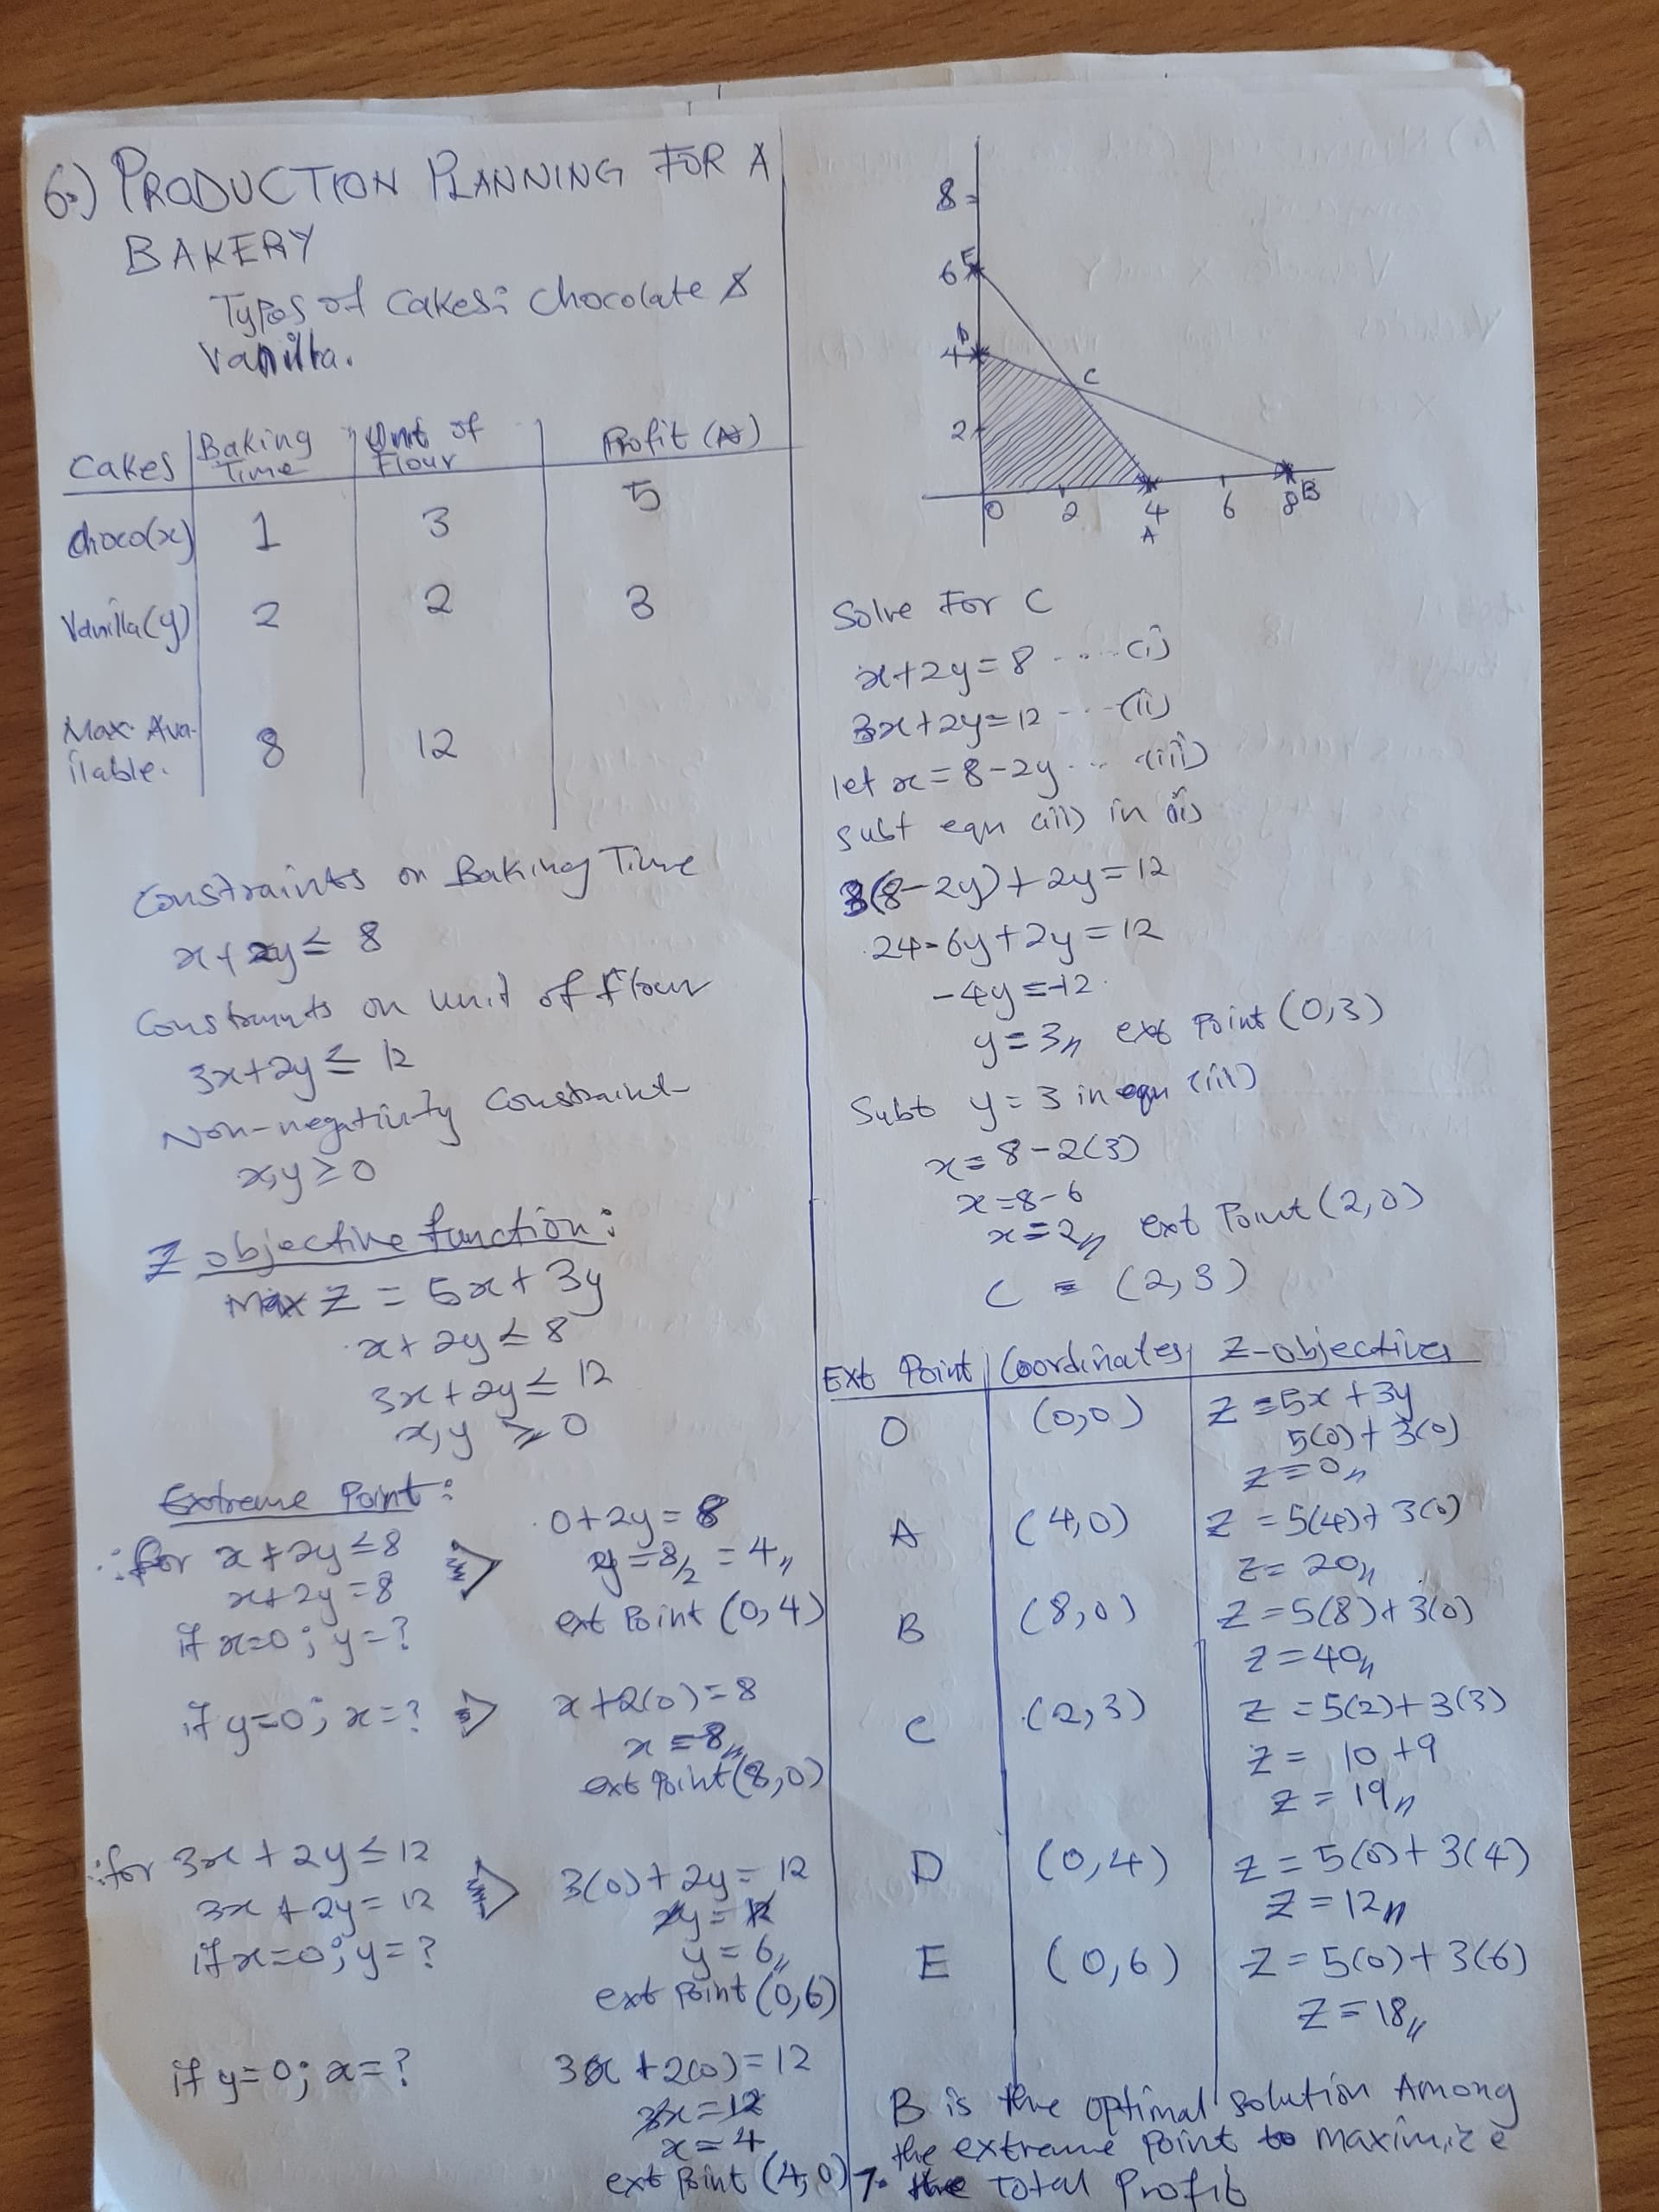 6.) PRODUCTION PLANNING FOR A
BAKERY
Types of cakes: chocolate &
Vanilla.
Cakes Baking Time Unit of Flour Profit (₦)
choco(x) 1 3 5
Vanilla(y) 2 2 3
Max. Ava-ilable. 8 12
Constraints on Baking Time
x + 2y ≤ 8
Constraints on unit of flour
3x+2y ≤ 12
Non-negativity Constraint
x,y ≥ 0
Z objective function:
Max Z = 5x + 3y
x + 2y ≤ 8
3x + 2y ≤ 12
x, y ≥ 0
Extreme Point:
∴ for x + 2y ≤ 8
x + 2y = 8
if x=0; y=?
0+2y = 8
y = 8/2 = 4
ext Point (0,4)
if y=0; x=?
x+2(0)=8
x = 8
ext Point (8,0)
∴ for 3x + 2y ≤ 12
3x + 2y = 12
if x=0; y=?
3(0)+2y = 12
2y = 12
y = 6
ext Point (0,6)
if y=0; x=?
3x + 2(0) = 12
3x = 12
x = 4
ext Point (4,0)
8
6 E
D
4
C
2
0 2 4 6 8 B
A
Solve For C
x+2y=8 ---- (i)
3x+2y=12 ---- (ii)
let x = 8-2y -- (iii)
subt equ (iii) in (ii)
3(8-2y)+2y=12
24-6y+2y=12
-4y=-12
y=3 ext Point (0,3)
Subt y=3 in equ (iii)
x = 8-2(3)
x = 8-6
x = 2 ext Point (2,0)
C = (2,3)
Ext Point Coordinates Z-objectives
O (0,0) Z = 5x + 3y
5(0)+3(0)
Z = 0
A (4,0) Z = 5(4)+3(0)
Z = 20
B (8,0) Z = 5(8)+3(0)
Z = 40
C (2,3) Z = 5(2)+3(3)
Z = 10+9
Z = 19
D (0,4) Z = 5(0)+3(4)
Z = 12
E (0,6) Z = 5(0)+3(6)
Z = 18
B is the optimal solution Among
the extreme point to maximize
7. the Total Profit